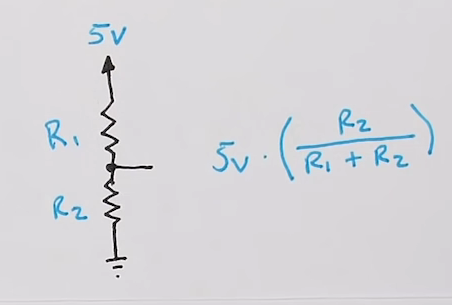 5V
R1
R2
5V · (R2 / (R1 + R2))